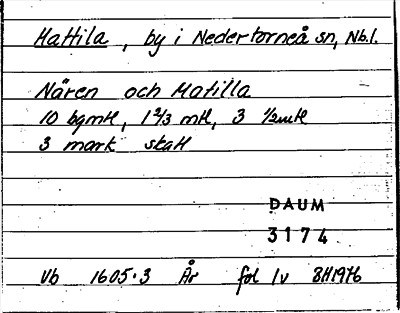 Mattila, by i Nedertorneå sn, Nb.l.
Nären och Matilla
10 bgmtl, 1 2/3 mtl, 3 1/2mtl
3 mark skatt
DAUM
3174
Vb 1605:3 År fol 1v BH1976